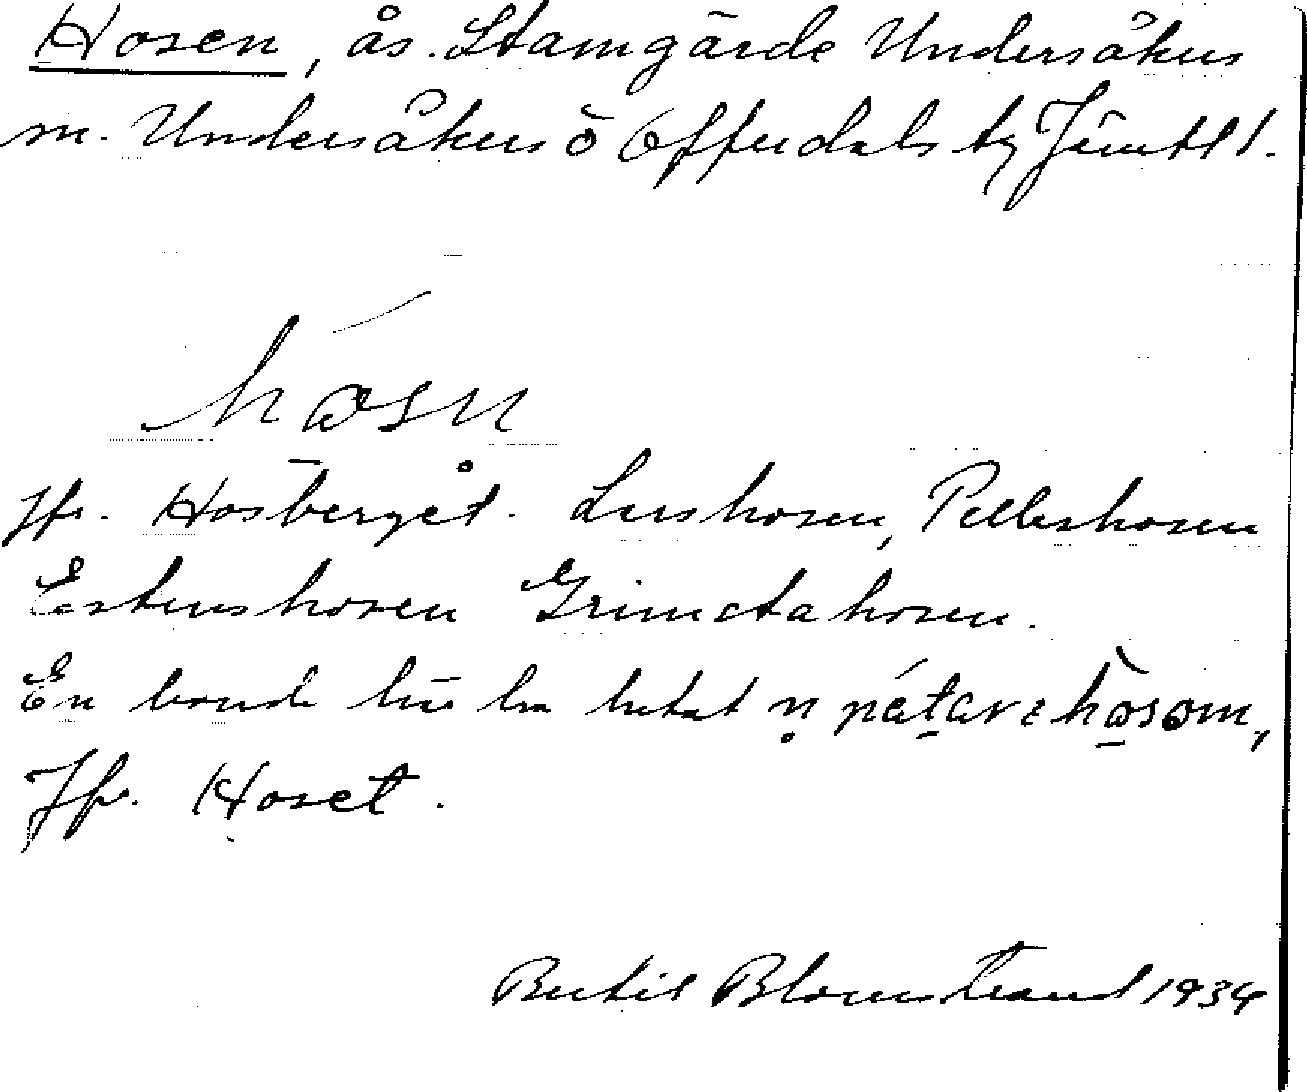 Hosen, ås. Stamgärde Undersåkers
m. Undersåkers ö Offerdals tg Jämtl l.
håsn
Jfr. Hosberget. Lershosen, Pellershosen
Estenshosen Grimstahosen.
En bonde här ha hetat n
Jfr. Hoset.
Bertil Blomstrand 1934